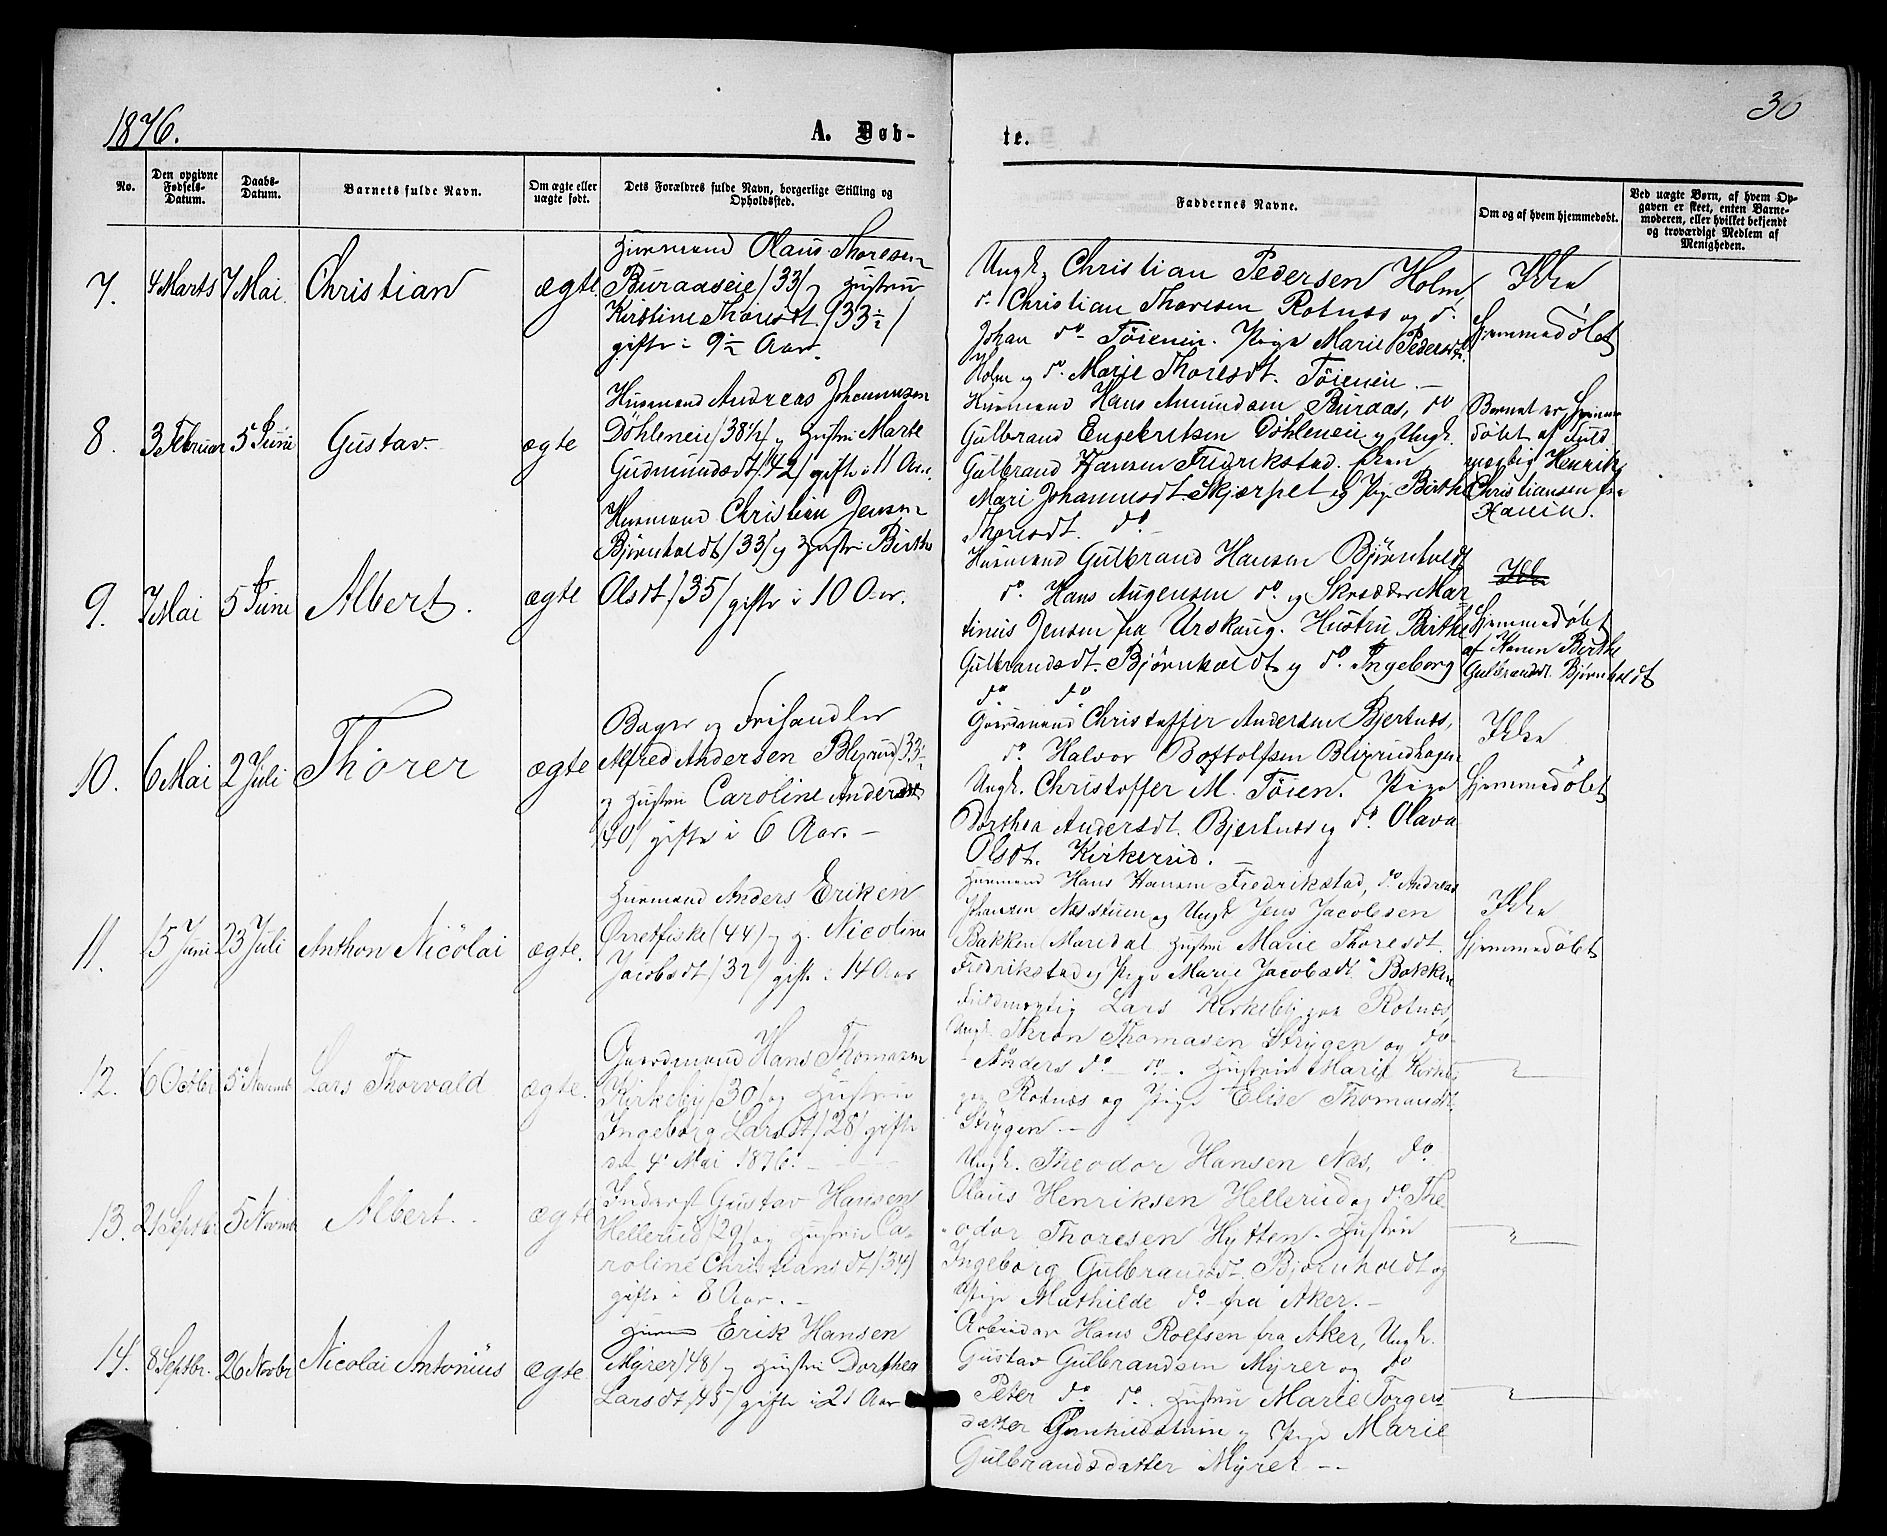 1876.
A. Døb-
te.
30
No.
Den opgivne Fødsels-Datum.
Daabs-Datum.
Barnets fulde Navn.
Om ægte eller uægte født.
Dets Forældres fulde Navn, borgerlige Stilling og Opholdssted.
Faddernes Navne.
Om og af hvem hjemmedøbt.
Ved uægte Børn, af hvem Opgaven er skeet, enten Barnemoderen, eller hvilket bekjendt og troværdigt Medlem af Menigheden.
7. 4 Marts 7 Mai Christian ægte.
Huusmand Olaus Thoresen
Buraaseie /33/ og Hustru
Kirstine Thoresdt. /33½/
gifte i 9½ Aar.
Ungk. Christian Pedersen Holm,
do. Christian Thoresen Rotnes og d.
Johan do Töieneie. Pige Marie Pedersdt.
Holm og do. Marie Thoresdt. Töieneie. —
Ikke
hjemmedøbt
8. 3 Februar 5 Juni Gustav. ægte
Husmand Andreas Johannesen
Döhleneie /38½/ og Hustru Marte
Gudmundsdt /42/ gifte i 11 Aar.
Husmand Hans Amundsen Buraas, do
Gulbrand Engebretsen Döhleneie og Ungk.
Gulbrand Hansen Fredrikstad.
Mari Johannesdt Skjærpet og Pige Birthe
Thoresdt. do —
Barnet er hjemme
døbt af Fuld
mægtig Henrik
Christiansen fra
9. 7 Mai 5 Juni Albert. ægte
Husmand Christian Jensen
Björnholdt /33/ og Hustru Birthe
Olsdt /35/ gifte i 10 Aar.
Husmand Gulbrand Hansen Björnholdt
do. Hans Augensen do. og Skrædder Mar-
tinus Jensen fra Urskoug. Hustru Birthe
Gulbrandsdt. Björnholdt og do. Ingeborg
do do
Ikke
hjemmedøbt
af Birthe
Gulbrandsdt. Björnholdt
10. 6 Mai 2 Juli Thorer ægte
Bager og Frihandler
Alfred Andersen /33½
og Hustru Caroline Andersdt
/40/ gifte i 6 Aar. —
Gaardmand Christoffer Andersen Bjertnes,
do. Halvor Bottolfsen
Ungk. Christoffer M. Töien. Pige
Dorthea Andersdt. Bjertnes og do. Olava
Olsdt. Kirkerud. —
Ikke
hjemmedøbt
11. 15 Juni 23 Juli Anthon Nicolai ægte.
Husmand Anders Eriksen
Örretfiske (44) og H. Nicoline
Jacobsdt /32/ gifte i 14 Aar
Husmand Hans Hansen Fredrikstad, do Andreas
Johansen Næsstuen og Ungk Jens Jacobsen
Bakken Maridal Hustru Marie Thoresdt.
Fredrikstad og Pige Marie Jacobsdt. Bakken
Ikke
hjemmedøbt
12. 6 Octbr 5 Novmb Lars Thorvald ægte.
Gaardmand Hans Thomasen
Kirkeby /30/ og Hustru
Ingeborg Larsdt /28/ gifte
den 4 Mai 1876. —
Fuldmægtig Lars Kirkeby paa Rotnes,
Ungk. Thron Thomasen Strygen og do
Anders do do. Hustru Marie Kirkeby
paa Rotnes og Pige Elise Thomasdt
Strygen. —
— " —
13. 21 Septbr 5 Novmb Albert. ægte
Inderst Gustav Hansen
Hellerud /29/ og Hustru Ca-
roline Christiansdt /34/
gifte i 8 Aar. —
Ungk. Theodor Hansen Næs, do
Olaus Henriksen Hellerud og do The-
odor Thoresen Hytten. Hustru
Ingeborg Gulbrandsdt. Björnholdt og
Pige Mathilde do fra Aker. —
— " —
14. 8 Septbr. 26 Novbr Nicolai Antonius ægte
Husm Erik Hansen
Myrer /48/ og Hustru Dorthea
Larsdt /45/ gifte i 21 Aar
Arbeider Hans Rolfsen fra Aker, Ungk.
Gustav Gulbrandsen Myrer og do
Peter do. do. Hustru Marie Torgers-
datter og Pige Marie
Gulbrandsdatter Myrer —
— " —